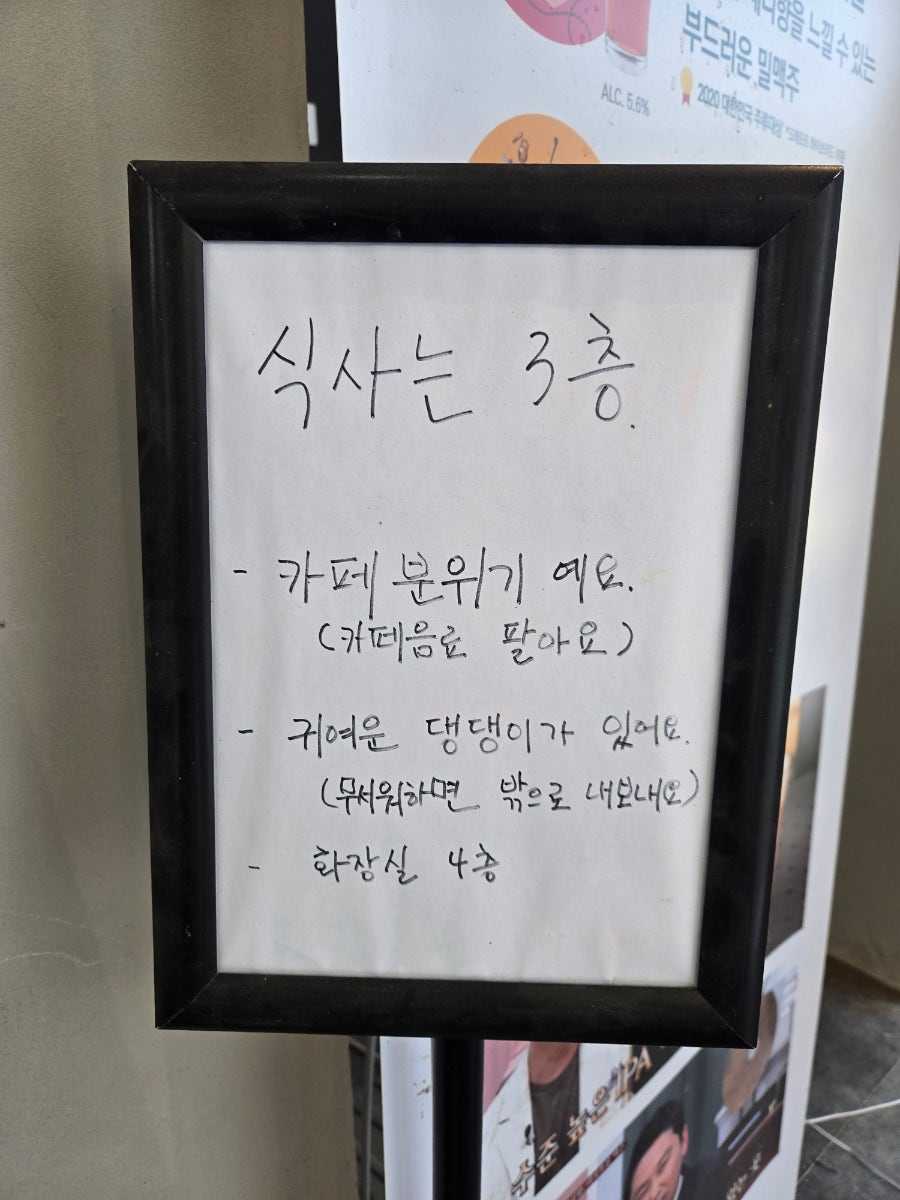 느낄 수 있는
부드러운 밀맥주
ALC. 5.6%
2020 대한민국 주류대상
식사는 3층.
- 카페 분위기 예요.
(카페음료 팔아요)
- 귀여운 댕댕이가 있어요.
(무서워하면 밖으로 내보내요)
- 화장실 4층
수준 높은 IPA